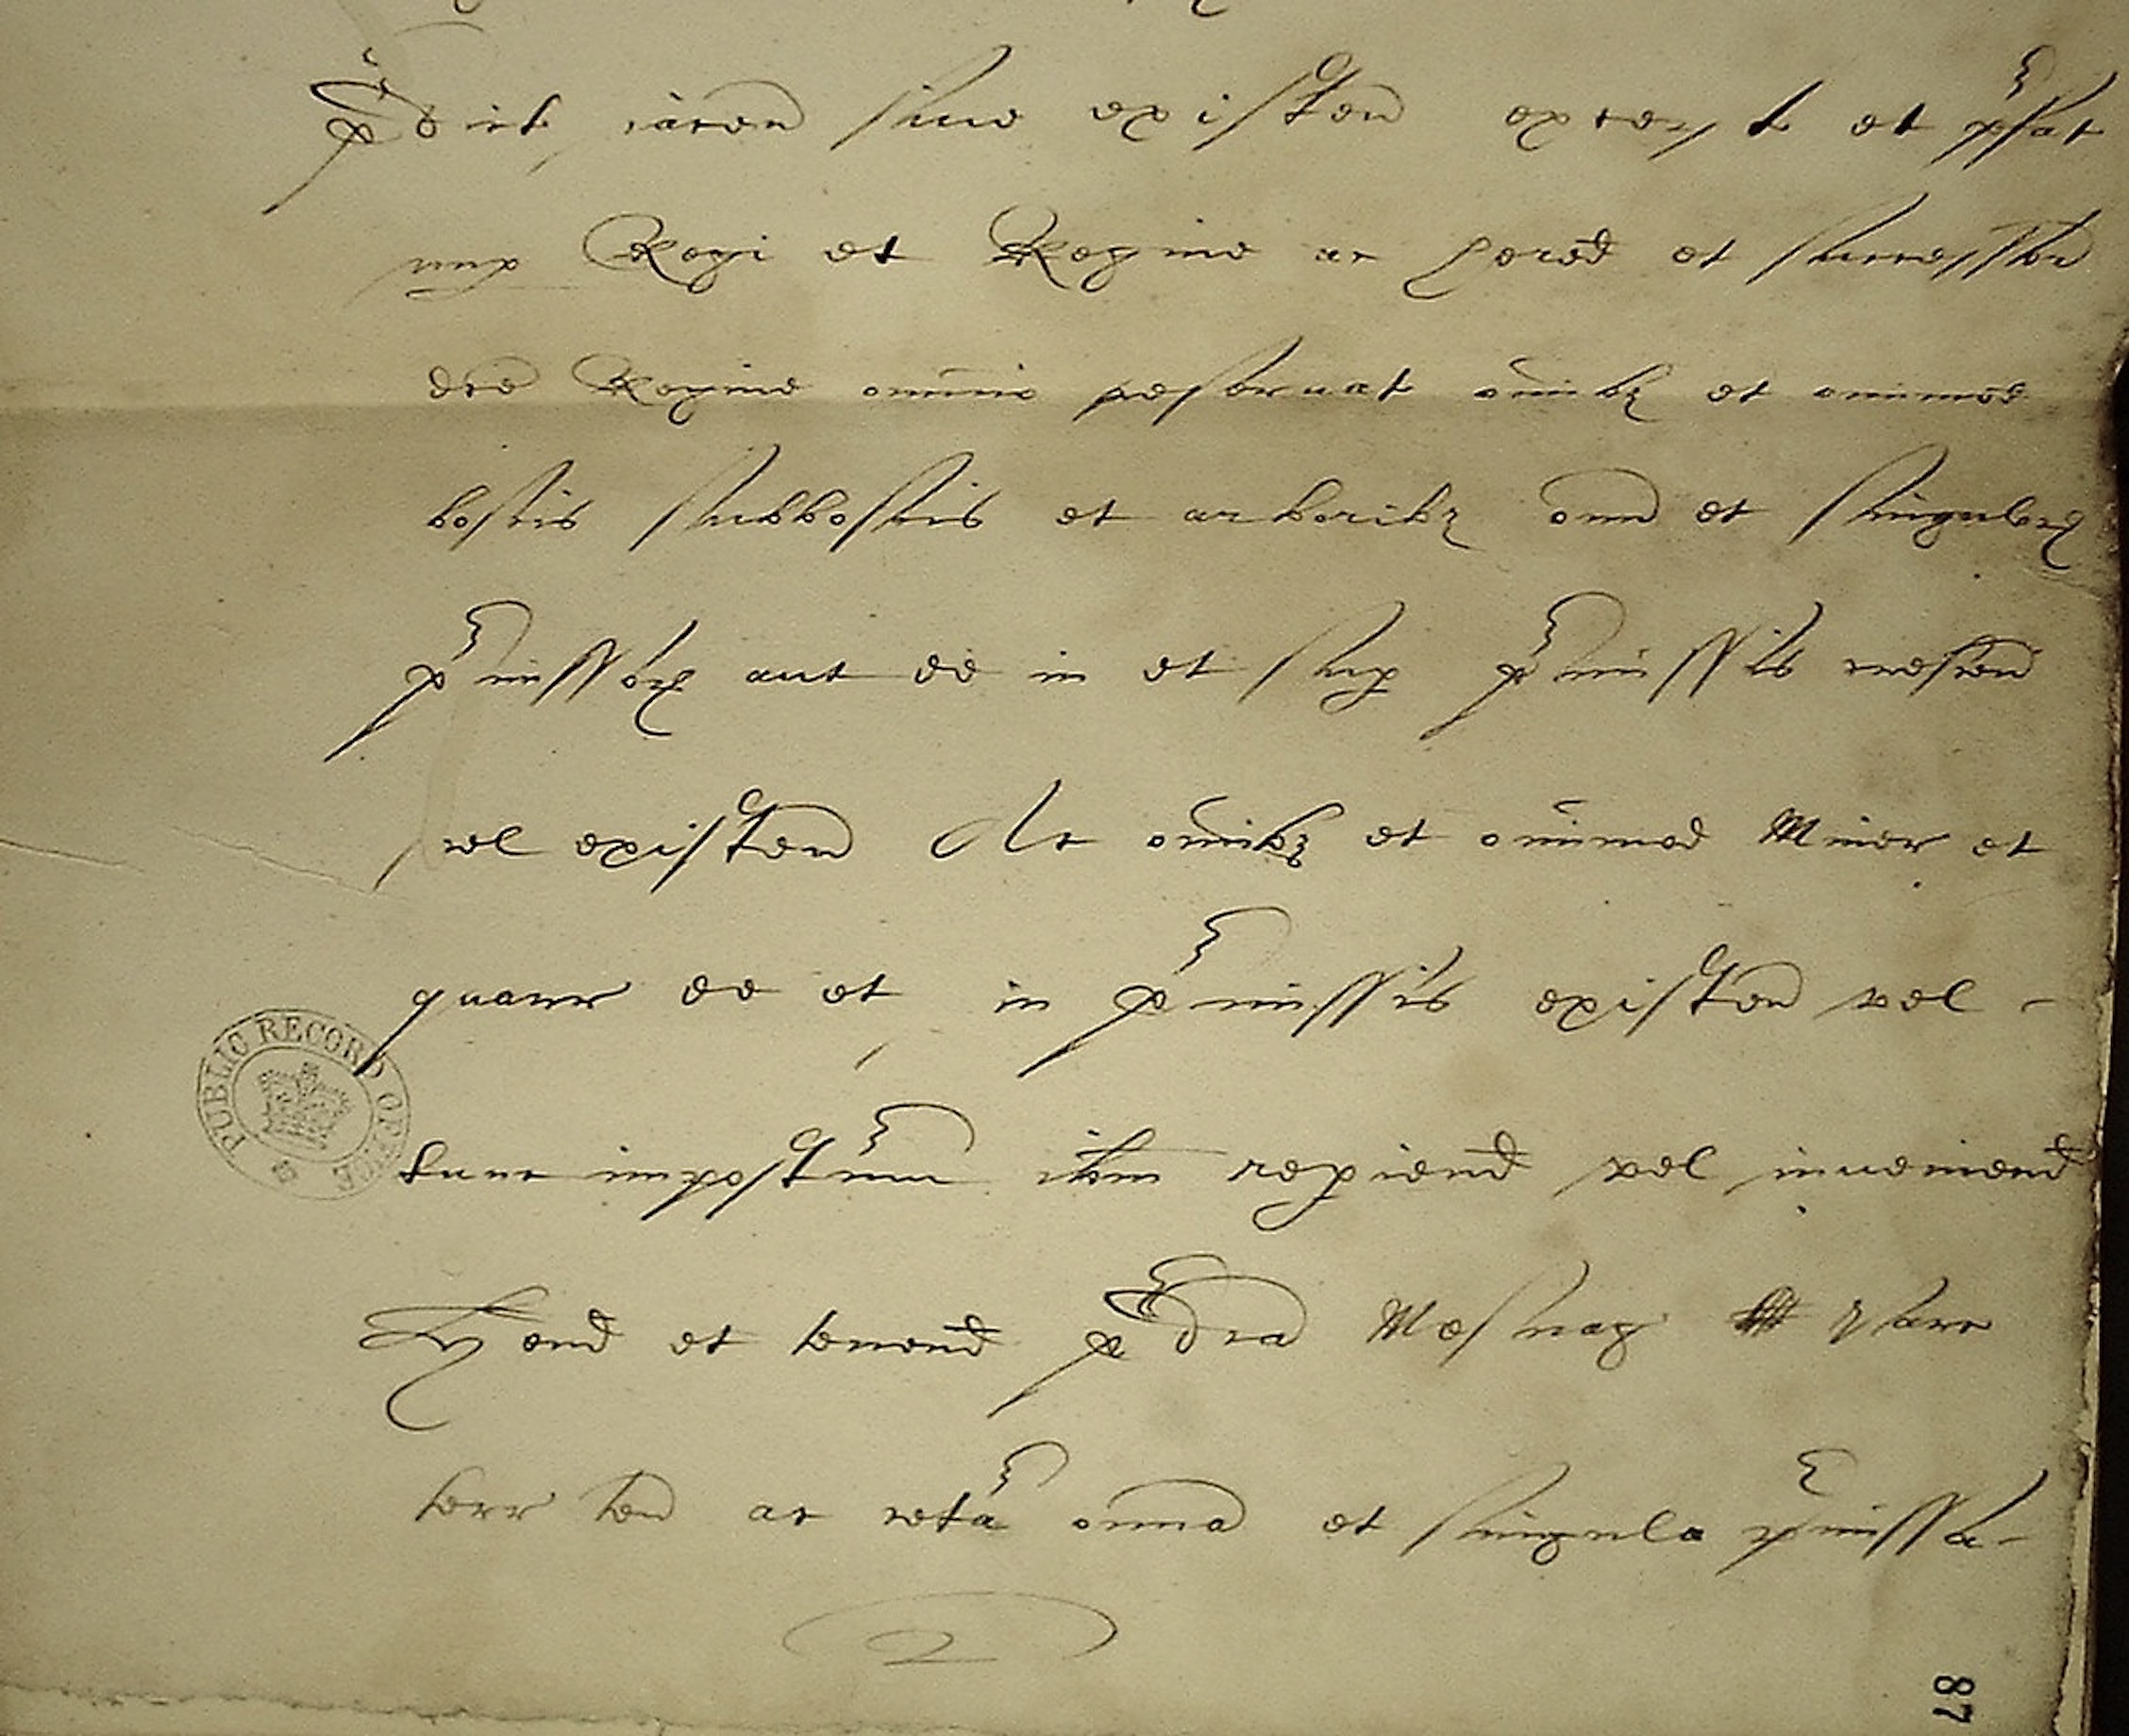 p'd'cis iacen sive existen except et p'fat
nup Regi et Regine ac hered et successor
dce Regine omnino reservat omibz et omimod
boscis subboscis et arboribz omn et singulorz
p'missorz aut de in et sup p'missis crescen
vel existen Ac omibz et omimod Miner et
quarr de et in p'missis existen vel -
tunc impost'um ibm repiend vel inveniend
Hend et tenend p'd'ca Mesuag
terr ten ac cet'a omnia et singula p'missa -
2
87
PUBLIC RECORD OFFICE